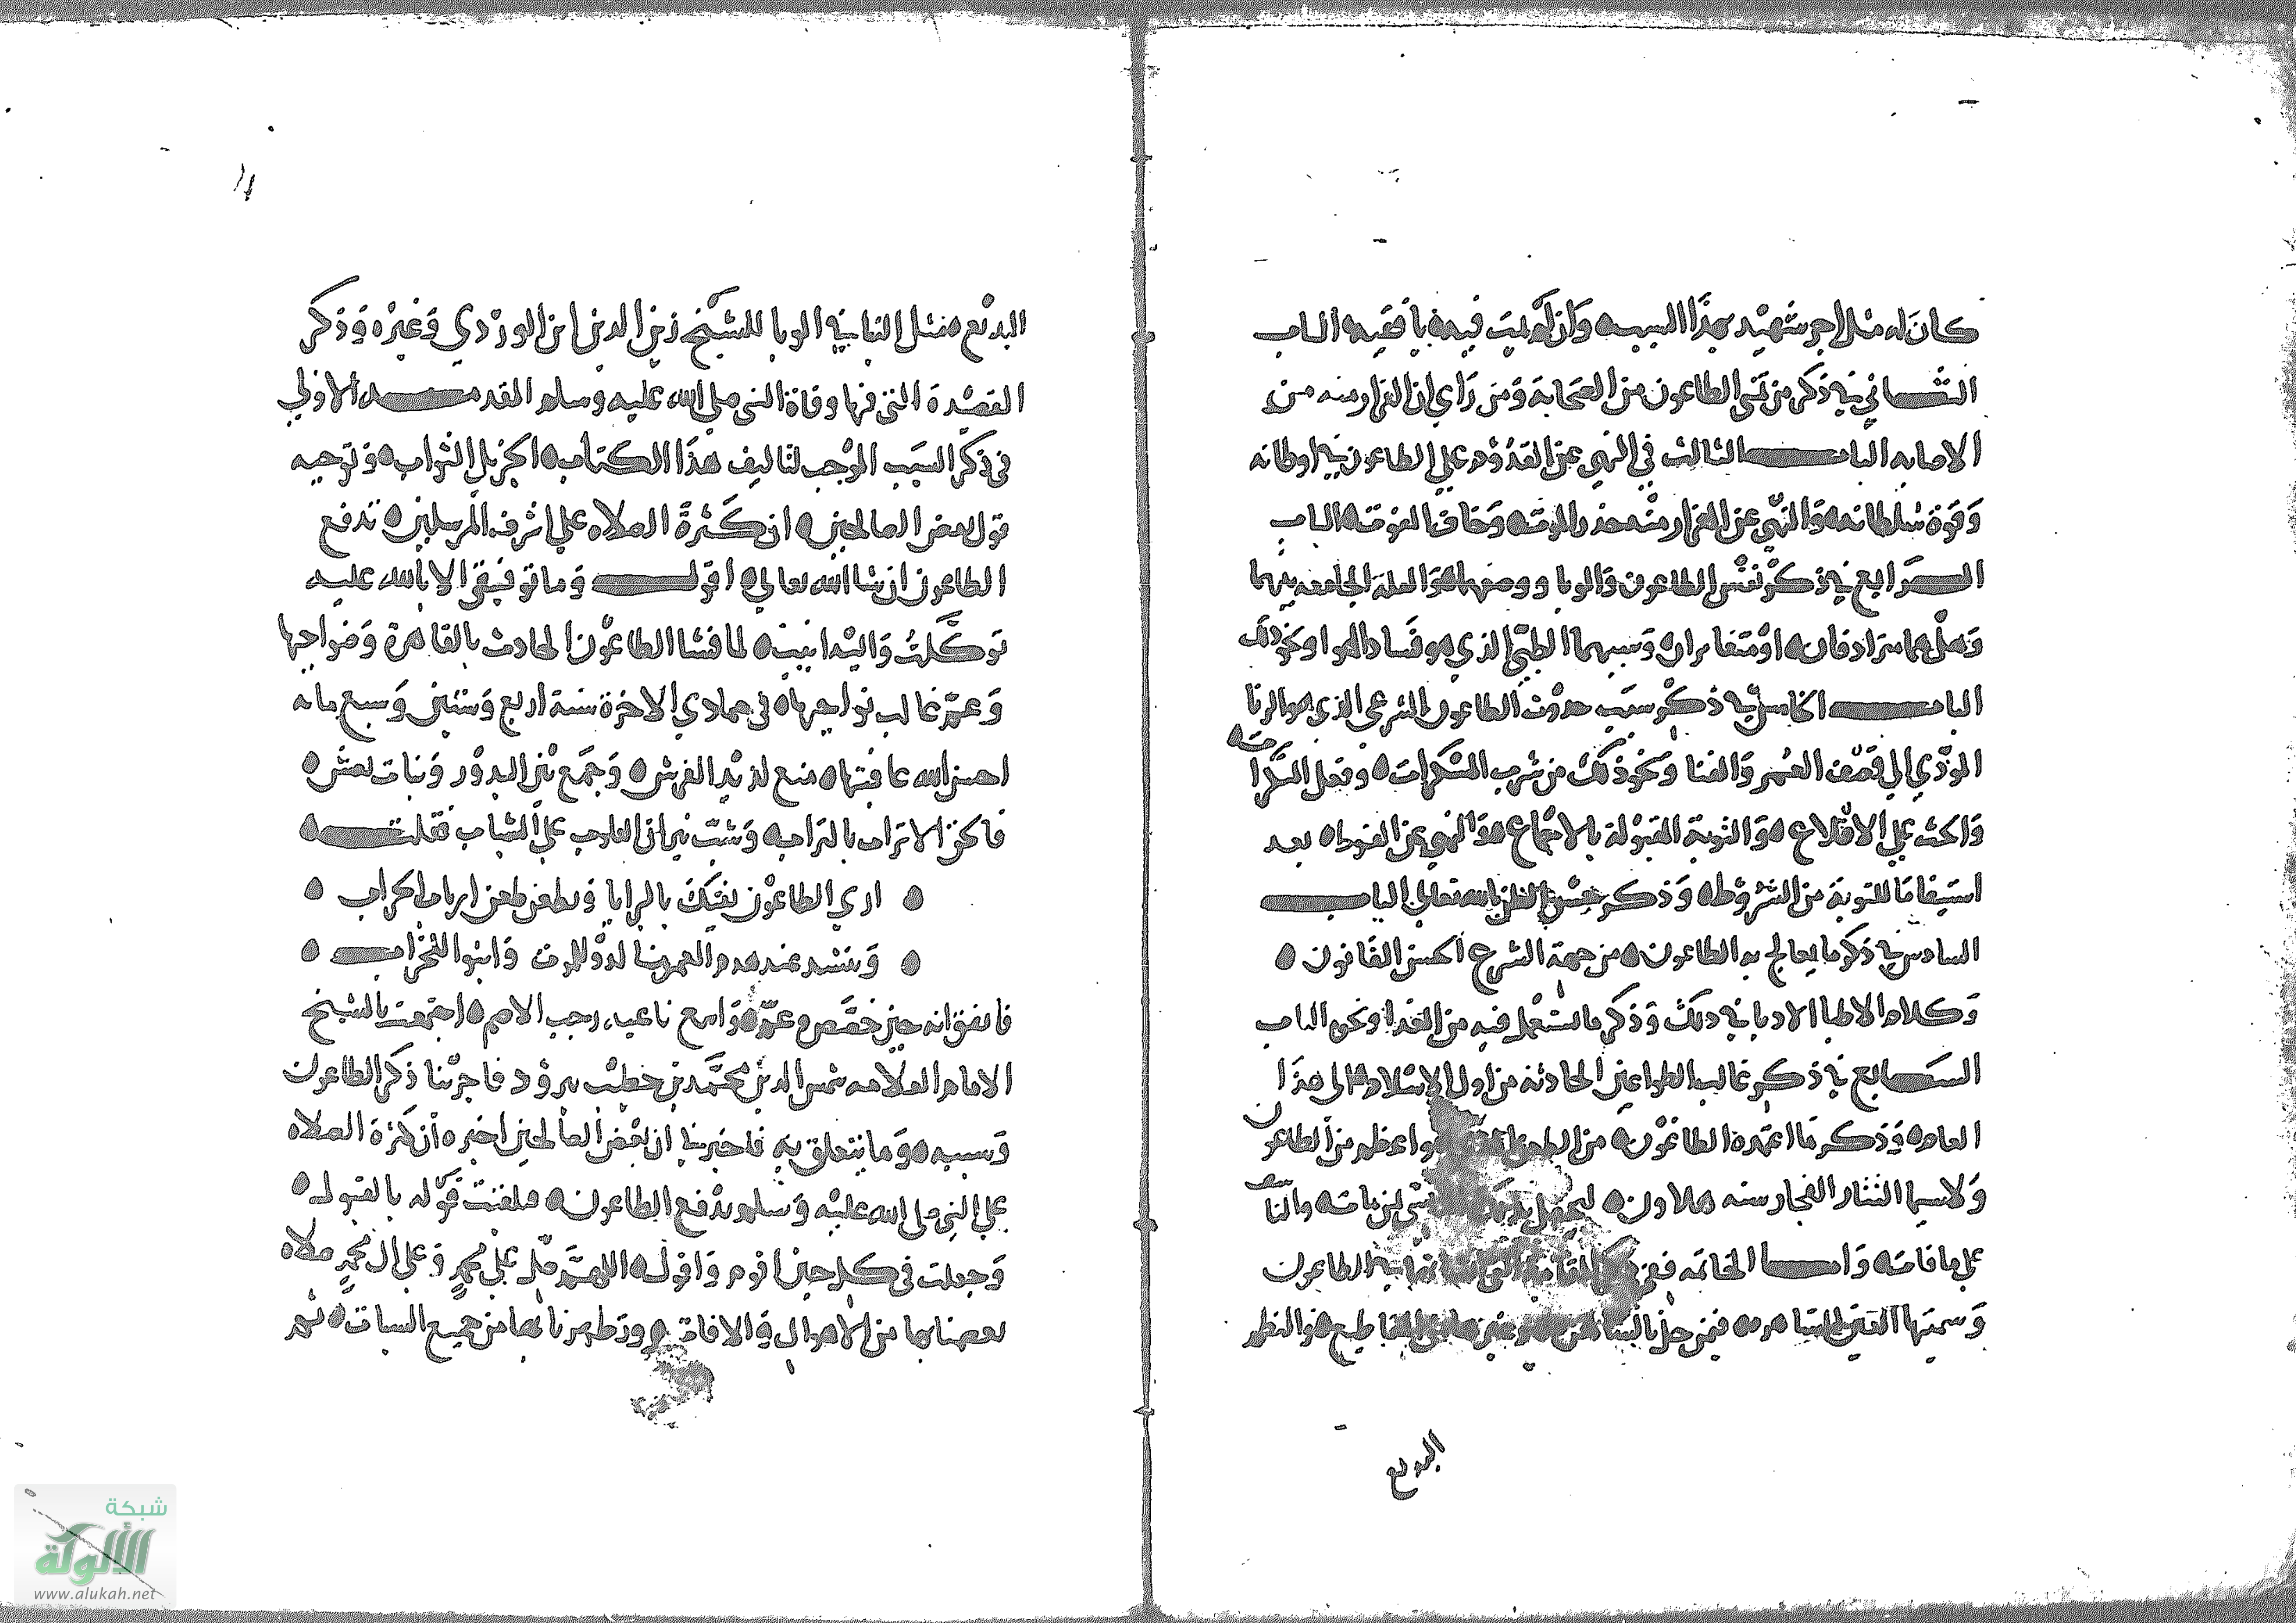 كان له مثل اجر شهيد بهذا السبب وان لم يمت فيه يا فقيه الباب
الثاني في ذكر من تمنى الطاعون من الصحابة ومن راي ان الفرار منه من
الاصابه الباب الثالث في النهي عن القدوم علي الطاعون في اوطانه
وقوة سلطانه والنهي عن الفرار منه حذر الموت وخاف الفوت الباب
الرابع في ذكر نفس الطاعون والوبا ووصفهما والعلة الجامعه بينهما
وهل هما مترادفان او متغايران وسببهما الطبي الذي هو فساد الهوا ونحو ذلك
الباب الخامس في ذكر سبب حدوث الطاعون الشرعي الذي هو الزنا
المودي الي قصف العمر والفنا ونحو ذلك من شرب المسكرات وفعل المنكرات
والحث علي الاقلاع والتوبة المقبولة بالاجماع والنهي عن القنوط بعد
استيفا ما للتوبة من الشروط وذكر حسن الظن بالله تعالي الباب
السادس في ذكر ما يعالج به الطاعون من جهة الشرع الحسن القانون
وكلام الاطبا الادبا في ذلك وذكر ما يستعمل فيه من الغدا ونحوه الباب
السابع في ذكر غالب الطواعين الحادثة من اول الاسلام الي هذا
العام وذكر ما اعتمده الطاعون من الطعن واعظم من الطاعون
ولاسيما التتار الفجار سنه هلاون لمن مات والتاسف
علي ما فات واما الخاتمه ففي الطاعون
وسميتها فيمن حل والنظر
البديع
البديع مثل النبا في الوبا للشيخ زين الدين ابن الوردي وغيره وذكر
القصيدة التي فيها وفاة النبي صلي الله عليه وسلم المقدمه الاولي
في ذكر السبب الموجب لتاليف هذا الكتاب الجزيل الثواب وتوجيه
قول بعض الصالحين ان كثرة الصلاه علي اشرف المرسلين تدفع
الطاعون ان شا الله تعالي اقول وما توفيقي الا بالله عليه
توكلت واليه انيب لما فشا الطاعون الحادث بالقاهرة وضواحيها
وعم غالب نواحيها في جمادي الاخرة سنة اربع وستين وسبع مائه
احسن الله عاقبتها منع لذيذ الفرش وجمع بين البدور وبنات نعش
فالحق الاتراب بالتراب وشبت نيران القلوب علي الشباب فقلت
اري الطاعون يفتك بالبرايا ويطعن طعن ارباب الحراب
وينشد عند هدم العمر منا لدوا للموت وابنوا للخراب
فاتفق انه حين خصص وعم واسمع ناعيه رجب الاصم اجتمعت بالشيخ
الامام العلامه شمس الدين محمد بن خطيب يبرود فاجرينا ذكر الطاعون
وسببه وما يتعلق به فاخبرنا ان بعض الصالحين اخبره ان كثرة الصلاه
علي النبي صلي الله عليه وسلم تدفع الطاعون فتلقيت قوله بالقبول
وجعلت في كل حين اقوم واقول اللهم صل علي محمد وعلي ال محمد صلاه
تعصمنا بها من الاهوال والافات وتطهرنا بها من جميع السيات ثم
شبكة
الألوكة
www.alukah.net